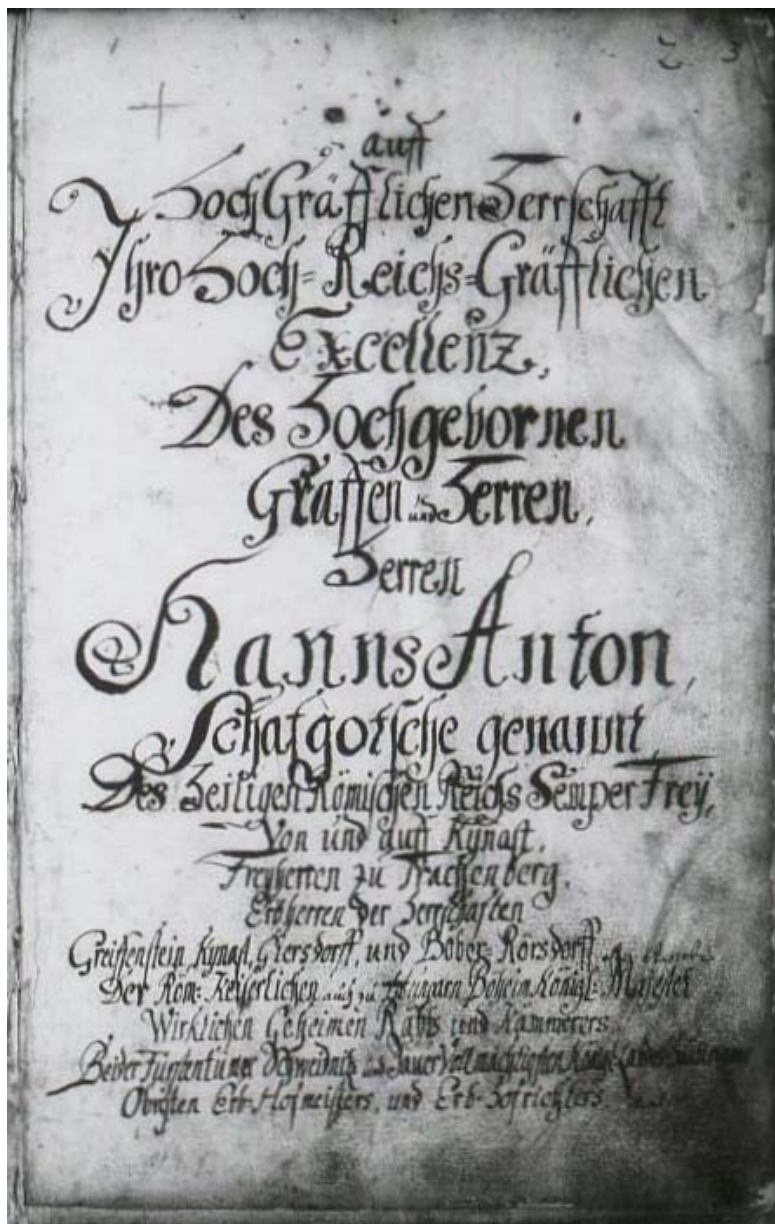 2 3
auff
HochGräfflichen Herrschafft
Ihro Hoch=Reichs=Gräfflichen
Excellenz,
Des Hochgebornen
Graffen und Herren,
Herren
Hanns Anton,
Schafgotsche genannt
Des Heiligen Römischen Reichs Semper Freÿ,
Von und auff Kynast,
Freyherren zu Trachenberg,
Erbherren der Herrschaften
Greiffenstein, Kynast, Giersdorff, und Bober-Rörsdorff
Der Röm: Keyserlichen auch zu Hungarn Böheim Königl: Majestet
Wirklichen Geheimen Raths und Kammerers
Beider Fürstentümer Schweidnitz und Jauer Vollmächtigsten Königl:
Obristen Erb-Hofmeisters, und Erb-Hofrichters